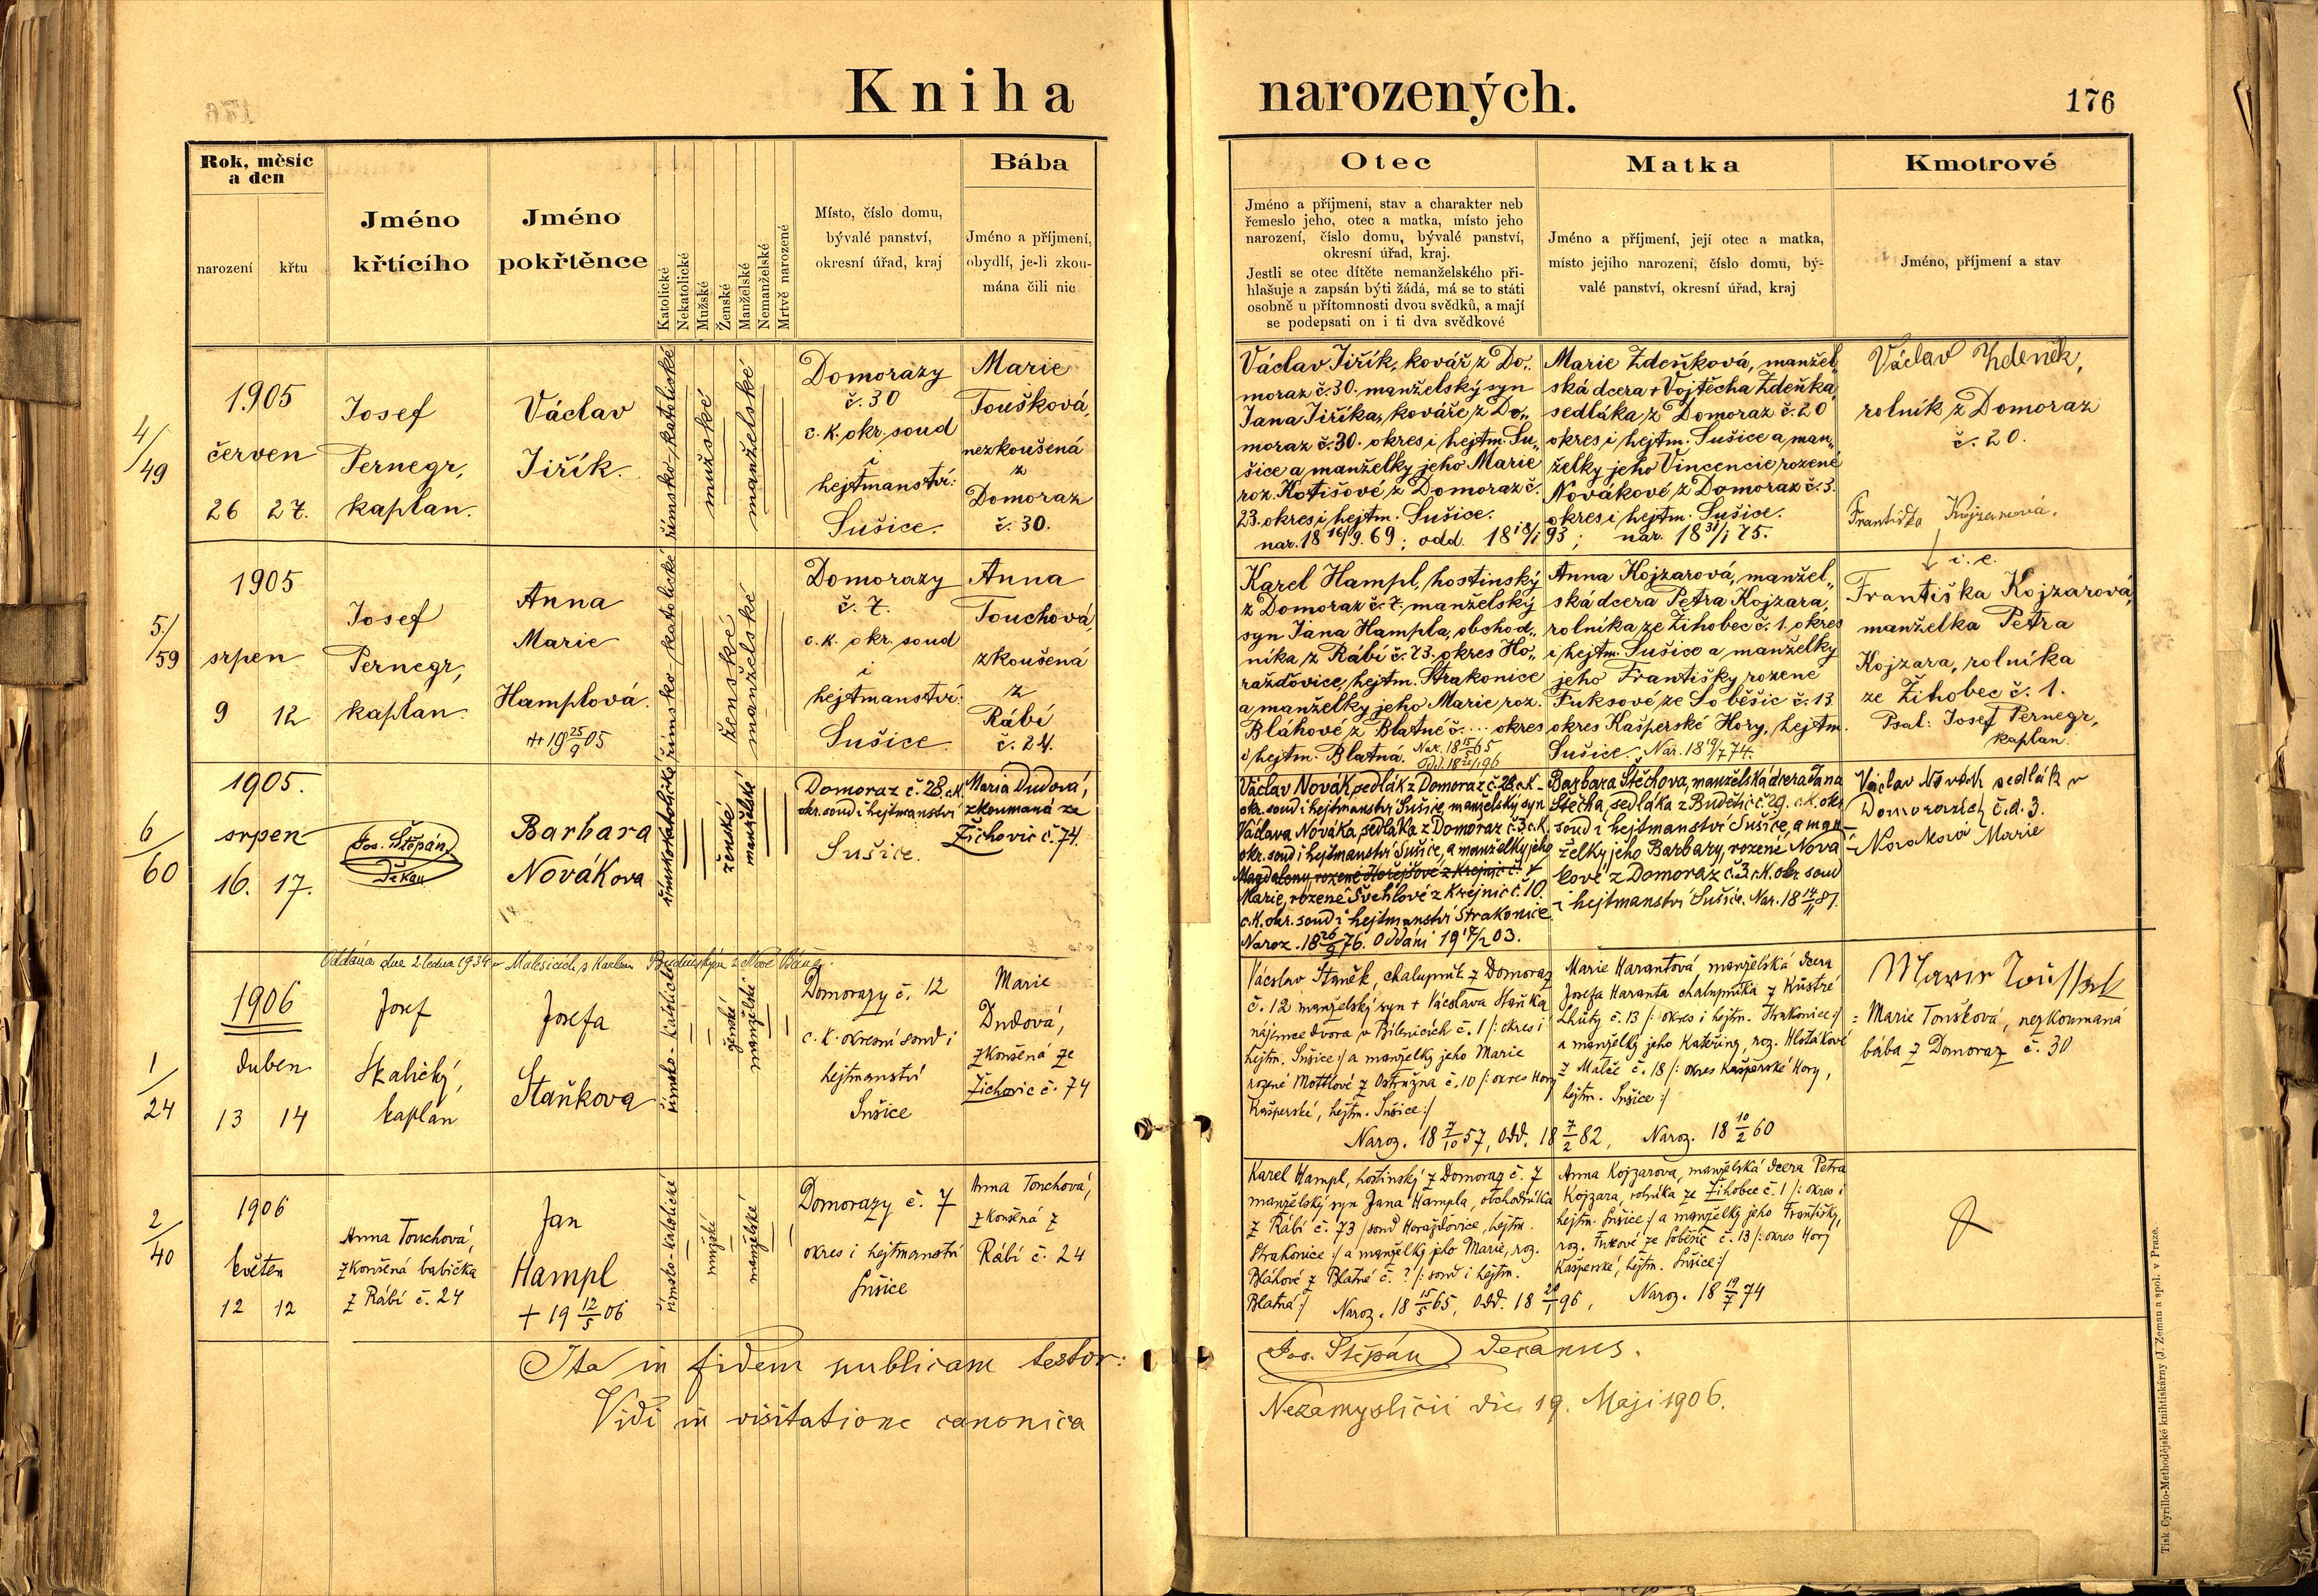 Kniha narozených.
176
Rok, měsíc
a den
narození
křtu
Jméno
křtícího
Jméno
pokřtěnce
Katolické
Nekatolické
Mužské
Ženské
Manželské
Nemanželské
Mrtvě narozené
Místo, číslo domu,
bývalé panství,
okresní úřad, kraj
Bába
Jméno a příjmení,
obydlí, je-li zkou-
mána čili nic
Otec
Jméno a příjmení, stav a charakter neb
řemeslo jeho, otec a matka, místo jeho
narození, číslo domu, bývalé panství,
okresní úřad, kraj.
Jestli se otec dítěte nemanželského při-
hlašuje a zapsán býti žádá, má se to státi
osobně u přítomnosti dvou svědků, a mají
se podepsati on i ti dva svědkové
Matka
Jméno a příjmení, její otec a matka,
místo jejího narození, číslo domu, bý-
valé panství, okresní úřad, kraj
Kmotrové
Jméno, příjmení a stav
4/49
1905
červen
26 27.
Josef
Pernegr,
kaplan.
Václav
Jiřík.
římsko-katolické
mužské
manželské
Domorazy
č. 30
c. k. okr. soud
i
hejtmanství:
Sušice.
Marie
Toušková,
nezkoušená
z
Domoraz
č. 30.
Václav Jiřík, kovář z Do„
moraz č. 30. manželský syn
Jana Jiříka, kováře z Do„
moraz č. 30. okres i hejtm. Su„
šice a manželky jeho Marie
roz. Kotišové z Domoraz č.
23. okres i hejtm. Sušice.
nar. 18 16/9. 69; odd. 18 18/1 93;
Marie Zdeňková, manžel„
ská dcera + Vojtěcha Zdeňka,
sedláka z Domoraz č. 20
okres i hejtm. Sušice a man„
želky jeho Vincencie rozené
Novákové z Domoraz č. 3.
okres i hejtm. Sušice.
nar. 18 31/1 75.
Václav Zdeněk,
rolník z Domoraz
č. 20.
Františka Kojzarová.
5./59
1905
srpen
9 12
Josef
Pernegr,
kaplan.
Anna
Marie
Hamplová.
++ 19 25/9 05
římsko-katolické
ženské
manželské
Domorazy
č. 7.
c. k. okr. soud
i
hejtmanství:
Sušice.
Anna
Touchová,
zkoušená
z
Rábí
č. 24.
Karel Hampl, hostinský
z Domoraz č. 7. manželský
syn Jana Hampla, obchod„
níka z Rábí č. 73. okres Ho„
ražďovice, hejtm. Strakonice
a manželky jeho Marie roz.
Bláhové z Blatné č. ... okres
i hejtm. Blatná. Nar. 18 15/5 65
Odd. 18 21/1 96
Anna Kojzarová, manžel„
ská dcera Petra Kojzara,
rolníka ze Žihobec č. 1. okres
i hejtm. Sušice a manželky
jeho Františky rozené
Fuksové ze Soběšic č. 13.
okres Kašperské Hory, hejtm.
Sušice. Nar. 18 19/7 74.
i. e.
Františka Kojzarová,
manželka Petra
Kojzara, rolníka
ze Žihobec č. 1.
Psal: Josef Pernegr,
kaplan.
6/60
1905.
srpen
16. 17.
Jos. Štěpán,
děkan
Barbara
Nováková
římskokatolické
ženské
manželské
Domoraz č. 28. c. k.
okr. soud i hejtmanství
Sušice.
Maria Dudová,
zkoumaná ze
Žichovic č. 74.
Václav Novák, sedlák z Domoraz č. 28. c. k.
okr. soud i hejtmanství Sušice, manželský syn
Václava Nováka, sedláka z Domoraz č. 3. c. k.
okr. soud i hejtmanství Sušice, a manželky jeho
Magdaleny, rozené Hořejšové z Krejnic č.
Marie, rozené Švehlové z Krejnic č. 10.
c. k. okr. soud i hejtmanství Strakonice.
Naroz. 18 26/9 76. Oddáni 19 17/2 03.
Barbara Stěchova, manželská dcera Jana
Stěcha, sedláka z Budětic č. 29. c. k. okr.
soud i hejtmanství Sušice, a man-
želky jeho Barbary, rozené Nová-
kové z Domoraz č. 3. c. k. okr. soud
i hejtmanství Sušice. Nar. 18 14/11 81.
Václav Novák sedlák v
Domorazích č. d. 3.
Nováková Marie
Oddána dne 2. ledna 1934 v Malesicích s Karlem
1/24
1906
duben
13 14
Josef
Skalický,
kaplan
Josefa
Staňkova
římsko-katolické
ženské
manželské
Domorazy č. 12
c. k. okresní soud i
hejtmanství
Sušice
Marie
Dudová,
zkoušená ze
Žichovic č. 74
Václav Staněk, chalupník z Domoraz
č. 12 manželský syn + Václava Staňka
nájemce dvora v Bílenicích č. 1 /: okres i
hejtm. Sušice :/ a manželky jeho Marie
rozené Mottlové z Ostružna č. 10 /: okres Hory
Kašperské, hejtm. Sušice :/
Naroz. 18 7/10 57, Odd. 18 7/2 82,
Marie Harantová, manželská dcera
Josefa Haranta chalupníka z Kustré
Lhůty č. 13 /: okres i hejtm. Strakonice :/
a manželky jeho Kateřiny, roz. Hlotákové
z Malče č. 18 /: okres Kašperské Hory,
hejtm. Sušice :/
Naroz. 18 10/2 60
= Marie Toušková, nezkoumaná
bába z Domoraz č. 30
2/40
1906
květen
12 12
Anna Touchová,
zkoušená babička
z Rábí č. 24
Jan
Hampl
+ 19 12/5 06
římsko-katolické
mužské
manželské
Domorazy č. 7
okres i hejtmanství
Sušice
Anna Touchová,
zkoušená z
Rábí č. 24
Karel Hampl, hostinský z Domoraz č. 7
manželský syn Jana Hampla, obchodníka
z Rábí č. 73 /: soud Horažďovice, hejtm.
Strakonice :/ a manželky jeho Marie, roz.
Bláhové z Blatné č. ? /: soud i hejtm.
Blatná :/ Naroz. 18 15/5 65, Odd. 18 21/1 96,
Anna Kojzarova, manželská dcera Petra
Kojzara, rolníka ze Žihobec č. 1 /: okres i
hejtm. Sušice :/ a manželky jeho Františky,
roz. Fuxové ze Soběšic č. 13 /: okres Hory
Kašperské, hejtm. Sušice :/
Naroz. 18 19/7 74
Ita in fidem publicam testor: Jos. Štěpán decanus.
Vidi in visitatione canonica Nezamyslicii die 19. Maji 1906.
Tisk Cyrillo-Methodějské knihtiskárny (J. Zeman a spol. v Praze.